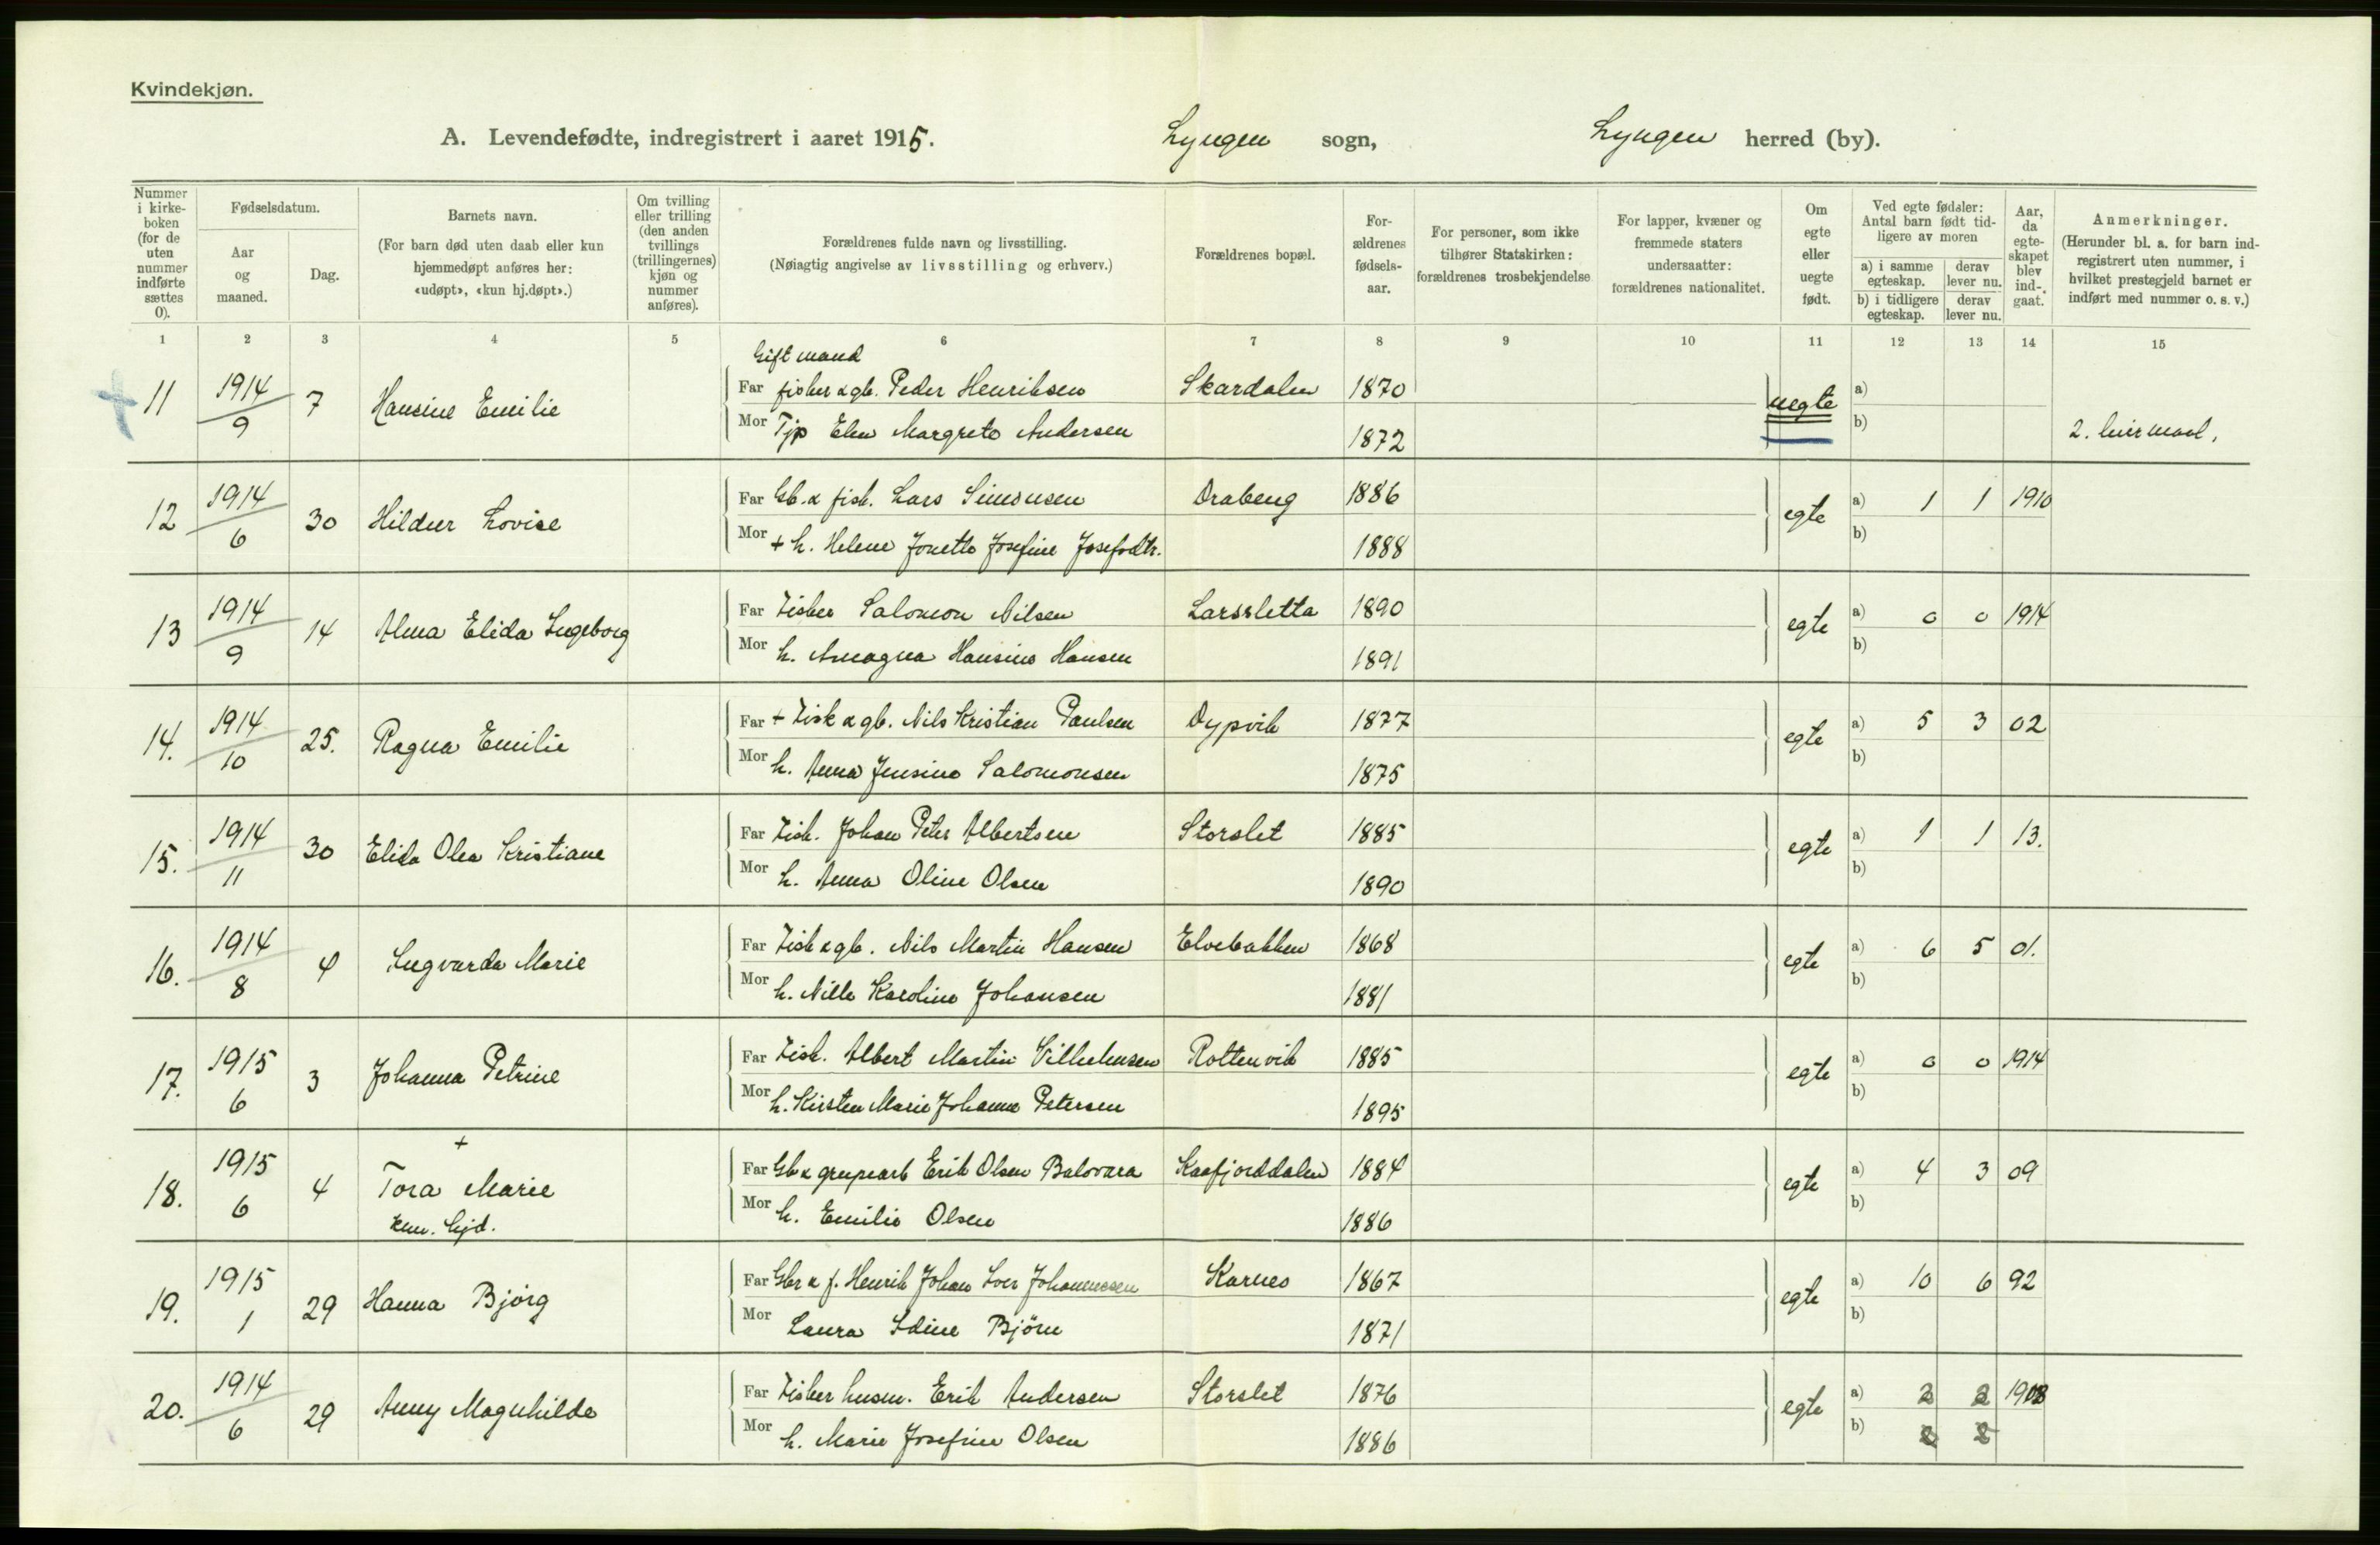 Kvindekjøn.
A. Levendefødte, indregistrert i aaret 1915. Lyngen sogn, Lyngen herred (by).
Nummer i kirkeboken (for de uten nummer indførte sættes 0).
Fødselsdatum.
Aar og maaned.
Dag.
Barnets navn.
(For barn død uten daab eller kun hjemmedøpt anføres her: «udøpt», «kun hj.døpt».)
Om tvilling eller trilling (den anden tvillings (trillingernes) kjøn og nummer anføres).
Forældrenes fulde navn og livsstilling.
(Nøiagtig angivelse av livsstilling og erhverv.)
Forældrenes bopæl.
Forældrenes fødselsaar.
For personer, som ikke tilhører Statskirken: forældrenes trosbekjendelse
For lapper, kvæner og fremmede staters undersaatter: forældrenes nationalitet.
Om egte eller uegte født.
Ved egte fødsler: Antal barn født tidligere av moren
a) i samme egteskap. derav lever nu.
b) i tidligere egteskap. derav lever nu.
Aar, da egteskapet blev indgaat.
Anmerkninger.
(Herunder bl. a. for barn indregistrert uten nummer, i hvilket prestegjeld barnet er indført med nummer o. s. v.)
1 2 3 4 5 6 7 8 9 10 11 12 13 14 15
Gift mand
11 1914/9 7 Hansine Emilie Far fisker & gb. Peder Henriksen Skardalen 1870 uegte a)
Mor Tjp Elen Margrete Andersen 1872 b) 2. leiermaal,
12 1914/6 30 Hildur Lovise Far Gb. & fisk. Lars Simonsen Drabeng 1886 egte a) 1 1 1910
Mor + h. Helene Jonette Josefine Josefsdtr. 1888 b)
13 1914/9 14 Alma Elida Ingeborg Far Fisker Salomon Nilsen Larssletta 1890 egte a) 0 0 1914
Mor h. Amagna Hansine Hansen 1891 b)
14. 1914/10 25. Ragna Emilie Far + Fisk & gb. Nils Kristian Paulsen Dypvik 1877 egte a) 5 3 02
Mor h. Anna Jensine Salomonsen 1875 b)
15. 1914/11 30 Elida Olea Kristiane Far Fisk. Johan Peter Albertsen Storslet 1885 egte a) 1 1 13.
Mor h. Anna Oline Olsen 1890 b)
16. 1914/8 4 Ingvarda Marie Far Fisk & gb. Nils Martin Hansen Elvebakken 1868 egte a) 6 5 01.
Mor h. Nille Karoline Johansen 1881 b)
17. 1915 6 3 Johanna Petrine Far Fisk. Albert Martin Vilhelmsen Rottenvik 1885 egte a) 0 0 1914
Mor h. Kirsten Marie Johanne Petersen 1895 b)
+
18. 1915 6 4 Tora Marie Far Gb & grupearb Erik Olsen Balovara Kaafjorddalen 1884 egte a) 4 3 09
kun. hjd. Mor h. Emilie Olsen 1886 b)
19. 1915 1 29 Hanna Bjørg Far Gbr & f. Henrik Johan Iver Johannessen Karnes 1867 egte a) 10 6 92
Mor Laura Edine Bjørn 1871 b)
20. 1914/6 29 Anny Magnhilde Far Fisker husm. Erik Andersen Storslet 1876 egte a) 2 2 1908
Mor h. Marie Josefine Olsen 1886 b) 2 2